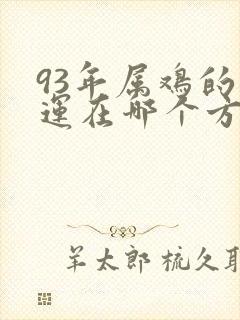 93年属鸡的
运在哪个方
羊太郎 梳久